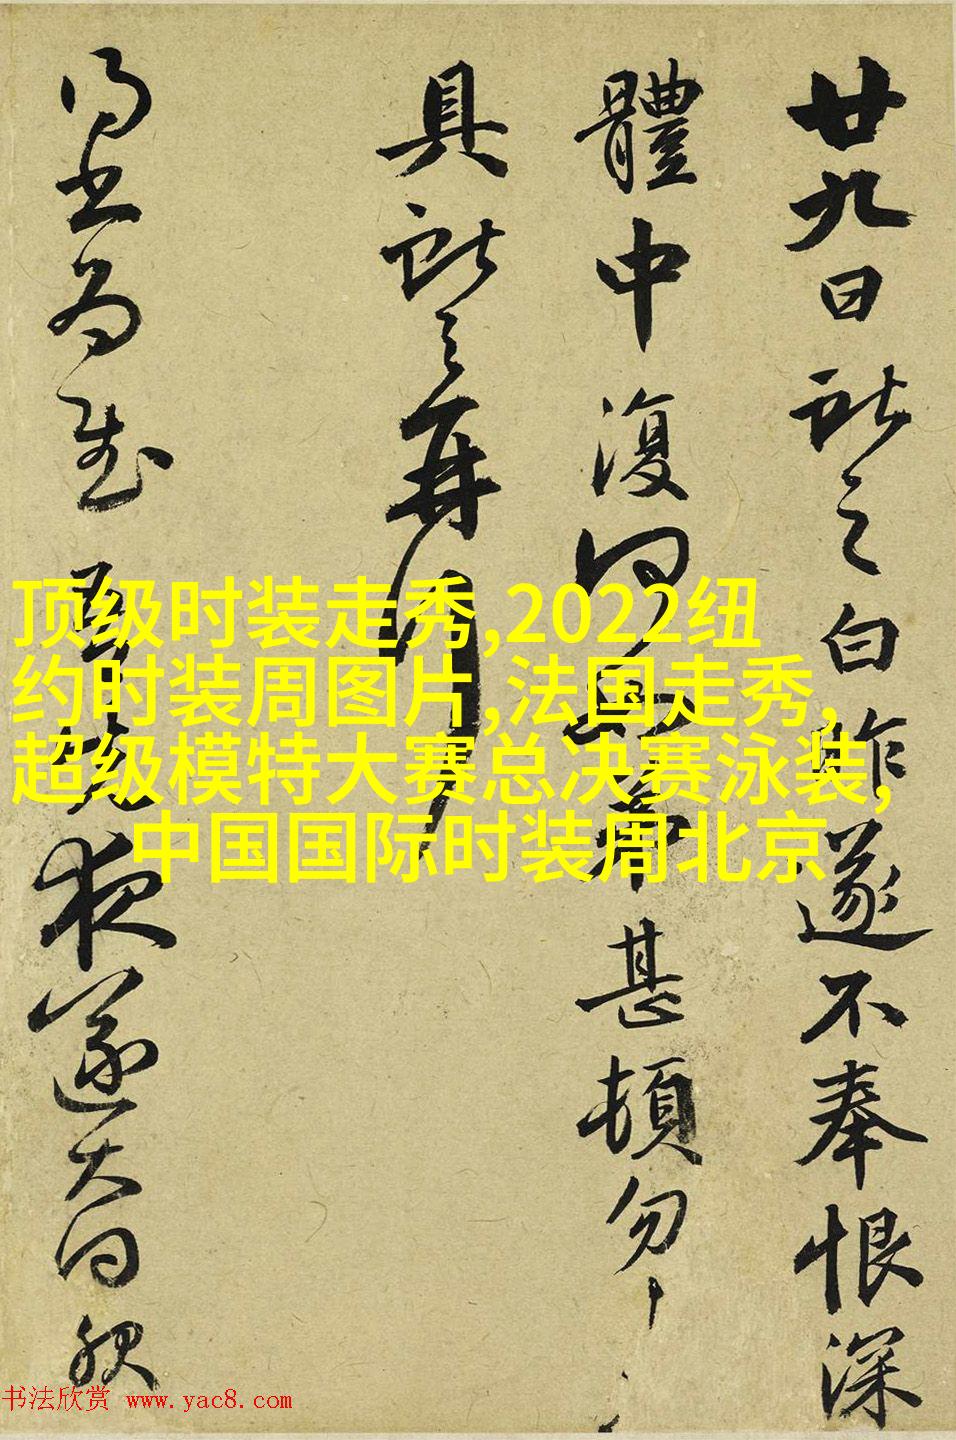 廿九日獻之白昨遂不奉恨深
體中復何如弟甚頓勿勿
具獻之再拜
得書為慰吾夜遂大
顶级时装走秀,2022纽
约时装周图片,法国走秀,
超级模特大赛总决赛泳装,
中国国际时装周北京
书法欣赏 www.yac8.com